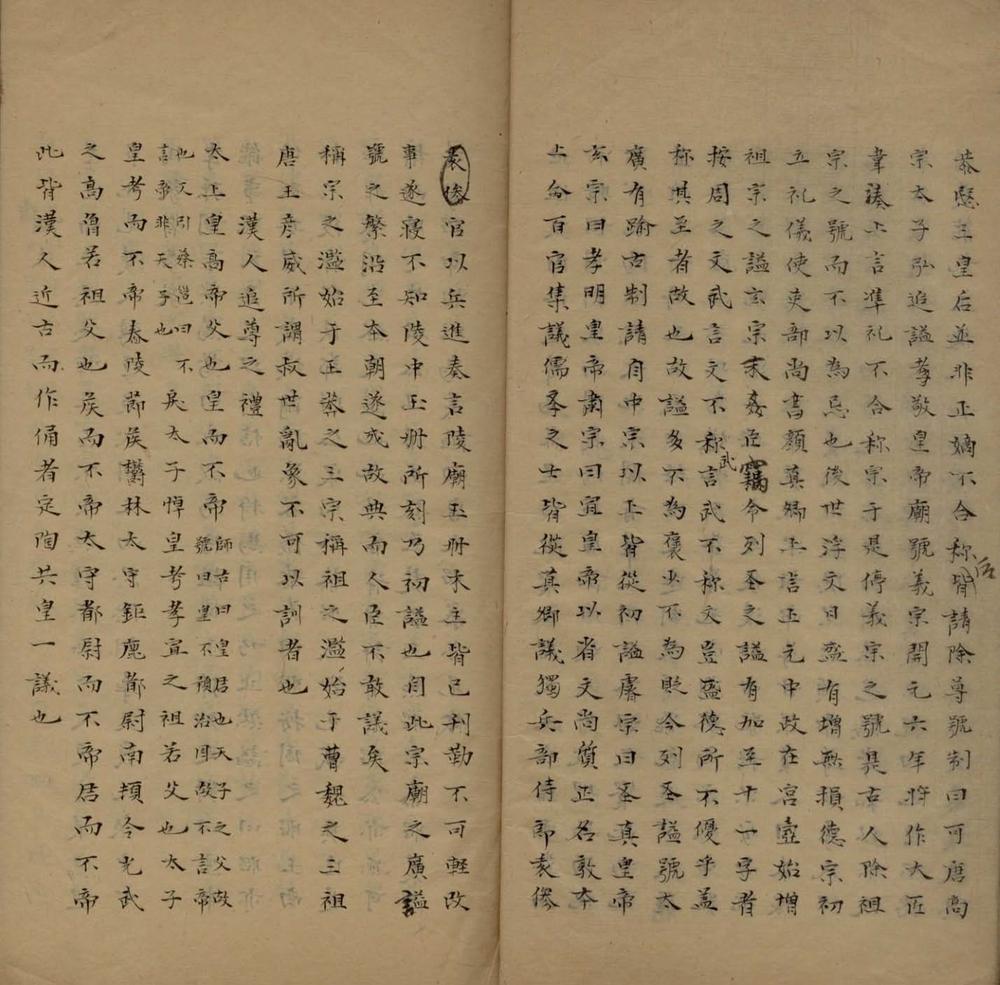 恭愍三皇后並非正嫡不合称后皆請除尊號制曰可唐高
宗太子弘追謚孝敬皇帝廟號義宗開元六年將作大匠
韋湊上言準礼不合称宗于是停義宗之號是古人除祖
宗之號而不以為忌也後世浮文日盛有增無損德宗初
立礼儀使吏部尚書顔真卿上言上元中政在宮壼始增
祖宗之謚玄宗末姦臣竊命列圣之謚有加至十一字者
按周之文武言文不称武言武不称文豈盛德所不優乎盖
称其至者故也故謚多不為褒少不為貶今列圣謚號太
廣有踰古制請自中宗以上皆從初謚睿宗曰圣真皇帝
玄宗曰孝明皇帝肅宗曰宣皇帝以省文尚質正名敦本
上命百官集議儒學之士皆從真卿議獨兵部侍郎袁傪
袁傪官以兵進奏言陵廟玉册木主皆已刊勒不可輕改
事遂寢不知陵中玉册所刻乃初謚也自此宗廟之廣謚
號之繁沿至本朝遂成故典而人臣不敢議矣
稱宗之濫始于王莽之三宗稱祖之濫始于曹魏之三祖
唐王彥威所謂叔世亂象不可以訓者也
漢人追尊之禮
太上皇高帝父也皇而不帝師古曰皇君也天子之父故號曰皇不預治国故不言帝
也又引蔡邕曰不言帝非天子也戾太子悼皇考孝宣之祖若父也太子
皇考而不帝舂陵節侯鬱林太守鉅鹿都尉南頓令光武
之高曾若祖父也侯而不帝太守都尉而不帝君而不帝
此皆漢人近古而作俑者定陶共皇一議也